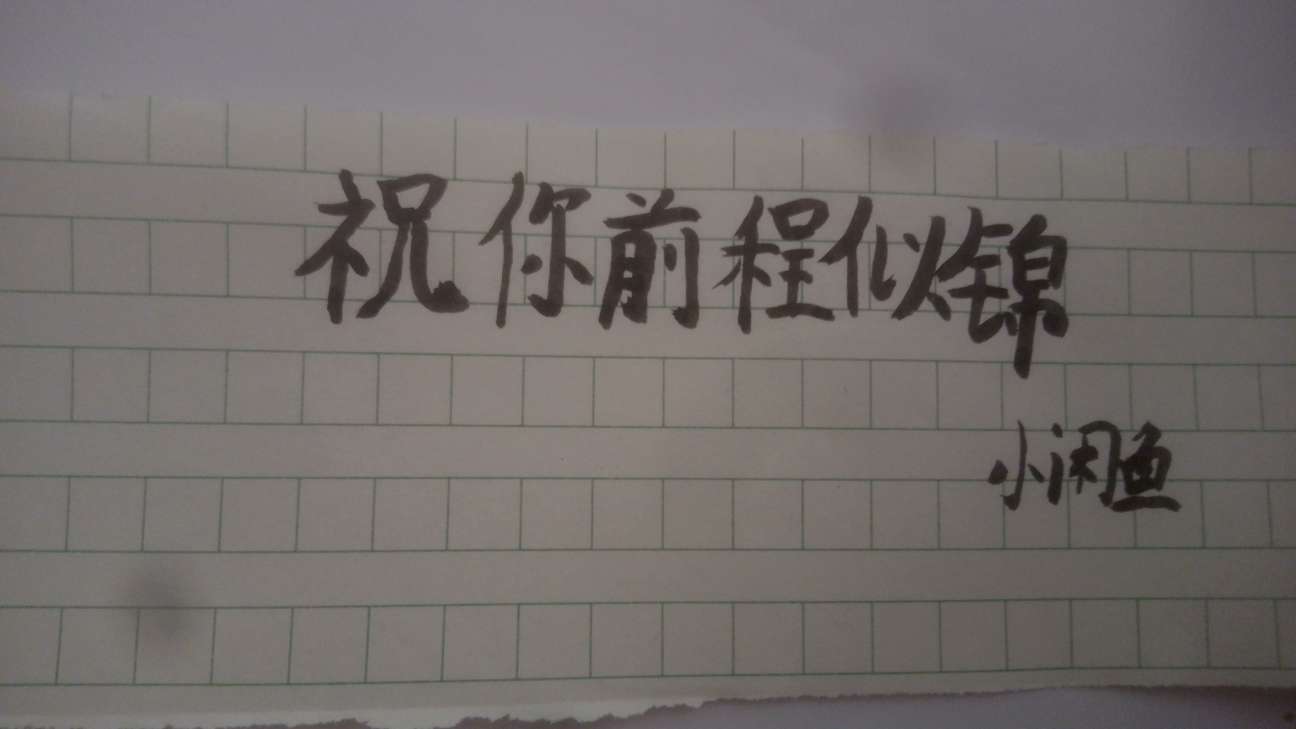 祝你前程似锦
小闲鱼